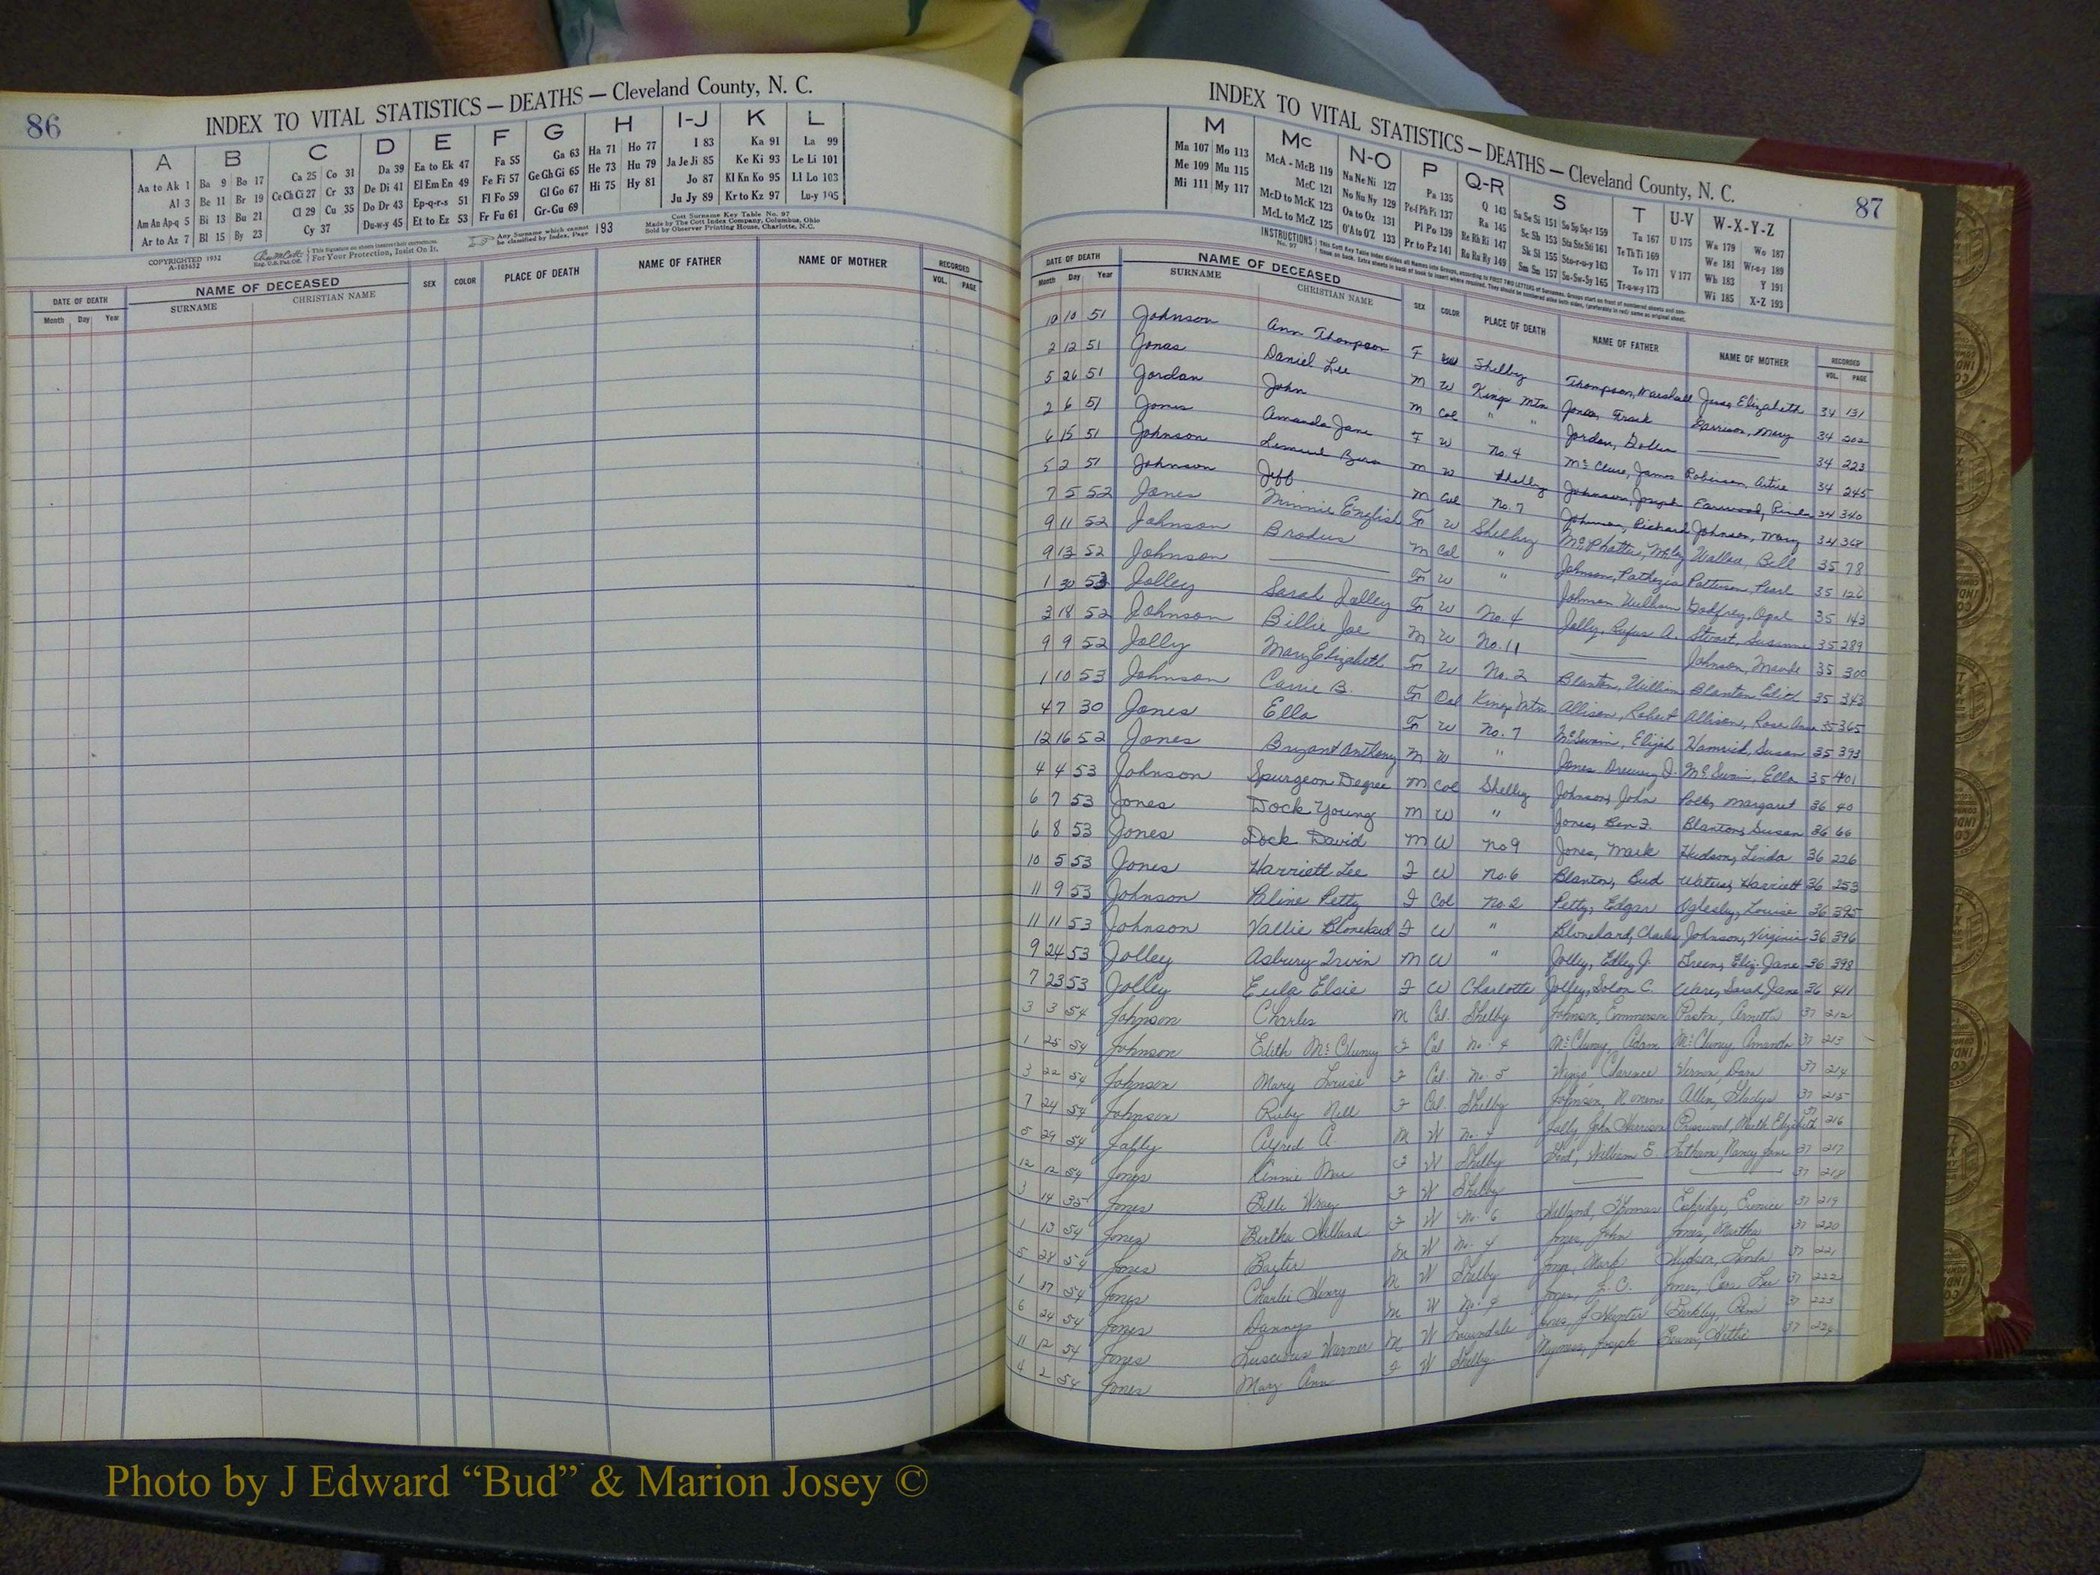 86
INDEX TO VITAL STATISTICS — DEATHS — Cleveland County, N. C.
A B C D E F G H I-J K L
Aa to Ak 1 Ba 9 Bo 17 Ca 25 Co 31 Da 39 Ea to Ek 47 Fa 55 Ga 63 Ha 71 Ho 77 I 83 Ka 91 La 99
Al 3 Be 11 Br 19 Ce Ch Ci 27 Cr 33 De Di 41 El Em En 49 Fe Fi 57 Ge Gh Gi 65 He 73 Hu 79 Ja Je Ji 85 Ke Ki 93 Le Li 101
Am An Ap-q 5 Bi 13 Bu 21 Cl 29 Cu 35 Do Dr 43 Ep-q-r-s 51 Fl Fo 59 Gl Go 67 Hi 75 Hy 81 Jo 87 Kl Kn Ko 95 Ll Lo 103
Ar to Az 7 Bl 15 By 23 Cy 37 Du-w-y 45 Et to Ez 53 Fr Fu 61 Gr-Gu 69 Ju Jy 89 Kr to Kz 97 Lu-y 105
COPYRIGHTED 1932
A-103652
This signature on sheets insures their correctness.
For Your Protection, Insist On It.
Any Surname which cannot be classified by Index, Page 193
Cott Surname Key Table No. 97
Made by The Cott Index Company, Columbus, Ohio
Sold by Observer Printing House, Charlotte, N.C.
DATE OF DEATH NAME OF DECEASED SEX COLOR PLACE OF DEATH NAME OF FATHER NAME OF MOTHER RECORDED
Month Day Year SURNAME CHRISTIAN NAME VOL. PAGE
INDEX TO VITAL STATISTICS — DEATHS — Cleveland County, N. C.
87
M Mc N-O P Q-R S T U-V W-X-Y-Z
Ma 107 Mo 113 McA - McB 119 Na Ne Ni 127 Pa 135 Q 143 Sa Se Si 151 So Sp Sq-r 159 Ta 167 U 175 Wa 179 Wo 187
Me 109 Mu 115 McC 121 No Nu Ny 129 Pe-f Ph Pi 137 Ra 145 Sc Sh 153 Sta Ste Sti 161 Te Th Ti 169 We 181 Wr-u-y 189
Mi 111 My 117 McD to McK 123 Oa to Oz 131 Pl Po 139 Re Rh Ri 147 Sk Sl 155 Sto-r-u-y 163 To 171 V 177 Wh 183 Y 191
McL to McZ 125 O'A to O'Z 133 Pr to Pz 141 Ro Ru Ry 149 Sm Sn 157 Su-Sw-Sy 165 Tr-u-w-y 173 Wi 185 X-Z 193
INSTRUCTIONS No. 97
DATE OF DEATH NAME OF DECEASED SEX COLOR PLACE OF DEATH NAME OF FATHER NAME OF MOTHER RECORDED
Month Day Year SURNAME CHRISTIAN NAME VOL. PAGE
10 10 51 Johnson Ann Thompson F W Shelby Thompson, Marshall Elizabeth 34 131
2 12 51 Jonas Daniel Lee M W Kings Mtn Jonas, Frank Garrison, Mary 34 202
5 26 51 Jordan John M Col " " Jordan, 34 223
2 6 51 Jones Amanda Jane F W No. 4 McClure, James Roberson, 34 245
6 15 51 Johnson Lemuel M W Shelby Johnson, Joseph Earwood, 34 340
5 2 51 Johnson Jeff M Col No. 7 Johnson, Richard Johnson, Mary 34 368
7 5 52 Jones Minnie English F W Shelby Wallace, Bell 35 78
9 11 52 Johnson Brodus M Col " Johnson, Patterson, Pearl 35 126
9 13 52 Johnson F W " Johnson William Godfrey, Opal 35 143
1 30 53 Jolley Sarah Jolley F W No. 4 Jolly, Rufus A. 35 289
3 18 52 Johnson Billie Joe M W No. 11 Johnson, Maude 35 300
9 9 52 Jolly Mary Elizabeth F W No. 2 Blanton, William Blanton 35 343
1 10 53 Johnson Carrie B. F Col Kings Mtn Allison, Robert Allison, Rose Ann 35 365
4 7 30 Jones Ella F W No. 7 McSwain, Elijah Hamrick, Susan 35 393
12 16 52 Jones Bryant Anthony M W " Jones Drewery J. McSwain, Ella 35 401
4 4 53 Johnson Spurgeon Degree M Col Shelby Johnson, John Margaret 36 40
6 7 53 Jones Dock Young M W " Jones, Ben F. Blanton, Susan 36 66
6 8 53 Jones Dock David M W No 9 Jones, Mark Hudson, Linda 36 226
10 5 53 Jones Harriett Lee F W No. 6 Blanton, Bud Waters, Harriett 36 253
11 9 53 Johnson Paline Petty F Col No. 2 Petty, Edgar Oglesby, Louise 36 395
11 11 53 Johnson Vallie Blonchard F W " Blonchard, Charles Johnson, Virginia 36 396
9 24 53 Jolley Asbury Irvin M W " Jolley, Edley J. Green, Eliz. Jane 36 398
7 23 53 Jolley Eula Elsie F W Charlotte Jolley, Solon C. Ware, Sarah Jane 36 411
3 3 54 Johnson Charles M Col. Shelby Johnson, Emmerson 37 212
1 25 54 Johnson Edith McCluney F Col No. 4 McCluney, Adam McCluney Amanda 37 213
3 22 54 Johnson Mary Louise F Col. No. 5 Clarence Vernon, Dara 37 214
7 24 54 Johnson Ruby Nell F Col. Shelby Johnson, Allen, Gladys 37 215
5 29 54 Jolly Alfred A. M W No. 4 Jolly, John Harrison 37 216
12 12 54 Jones Mae F W Shelby William E. Latham, Nancy Jane 37 217
3 14 35 Jones Belle Wray F W Shelby 37 218
1 13 54 Jones Bertha Hilland F W No. 6 Hilland, Thomas Eskridge, Eunice 37 219
5 28 54 Jones Baxter M W No. 4 Jones, John Jones, Martha 37 220
1 17 54 Jones Charlie Henry M W Shelby Jones, Mark Hudson, Linda 37 221
6 24 54 Jones Danny M W No. 4 Jones, J. C. Jones, Cora Lee 37 222
11 12 54 Jones Luscious Warner M W Jones, J. Hunter 37 223
4 2 54 Jones Mary Ann F W Shelby Joseph 37 224
Photo by J Edward “Bud” & Marion Josey ©